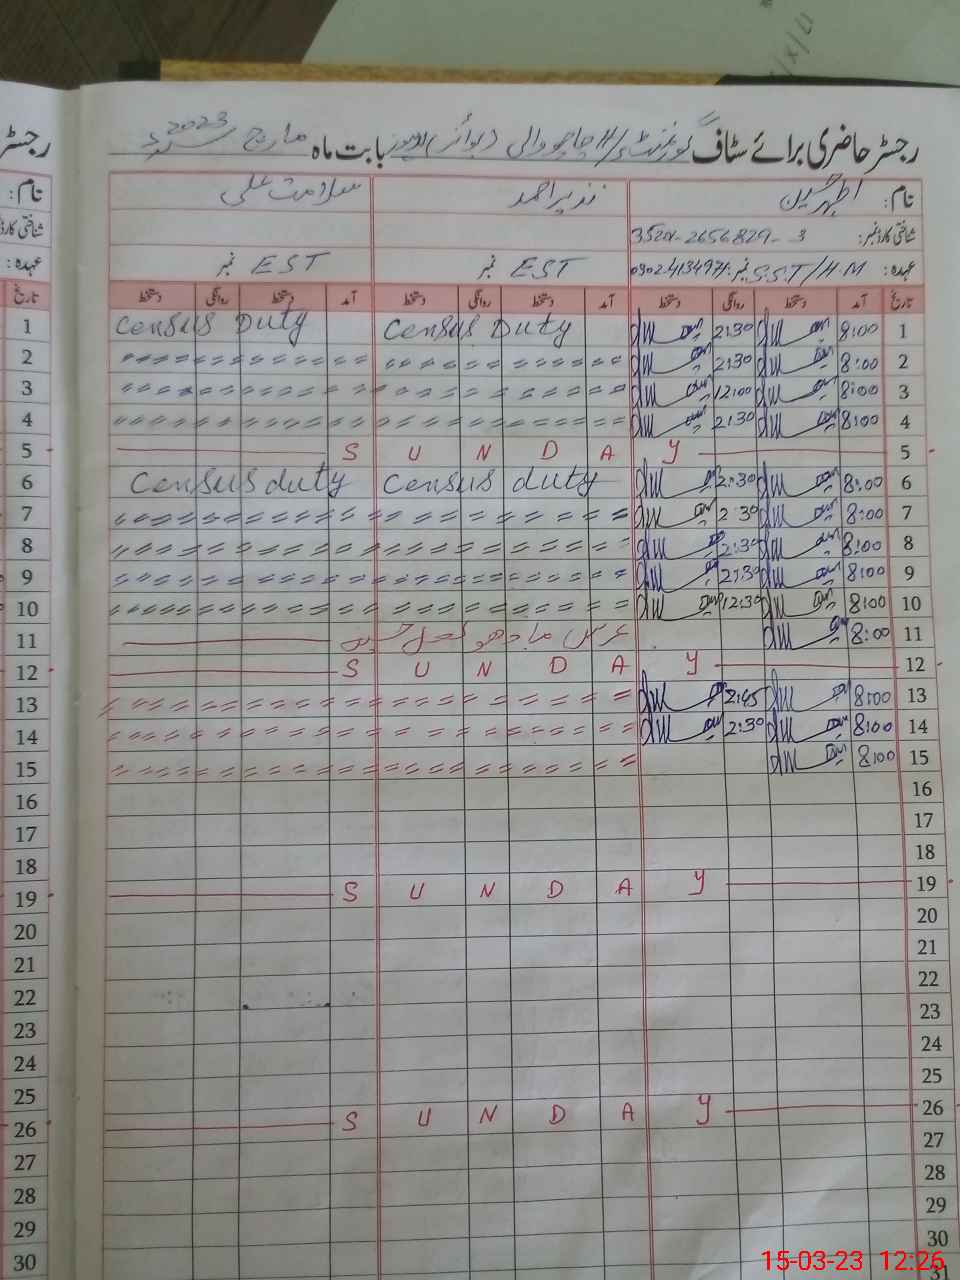 رجسٹر حاضری برائے سٹاف گورنمنٹ بابت ماہ مارچ 2023
نام: نذیر احمد سلامت علی
شناختی کارڈ نمبر: 3
عہدہ: S.S.T/HM نمبر EST نمبر EST نمبر
تاریخ آمد دستخط روانگی دستخط آمد دستخط روانگی دستخط آمد دستخط روانگی دستخط تاریخ
1 8:00 2:30 Census Duty Census Duty 1
2 8:00 2:30 〃 〃 2
3 8:00 12:00 〃 〃 3
4 8:00 2:30 〃 〃 4
5 S U N D A Y 5
6 8:00 2:30 Census duty Census duty 6
7 8:00 2:30 〃 〃 7
8 8:00 2:30 〃 〃 8
9 8:00 2:30 〃 〃 9
10 8:00 12:30 〃 〃 10
11 8:00 عرس مادھو لعل حسین 11
12 S U N D A Y 12
13 8:00 2:45 〃 〃 13
14 8:00 2:30 〃 〃 14
15 8:00 〃 〃 15
16 16
17 17
18 18
19 S U N D A Y 19
20 20
21 21
22 22
23 23
24 24
25 25
26 S U N D A Y 26
27 27
28 28
29 29
30 30
31
15-03-23 12:26